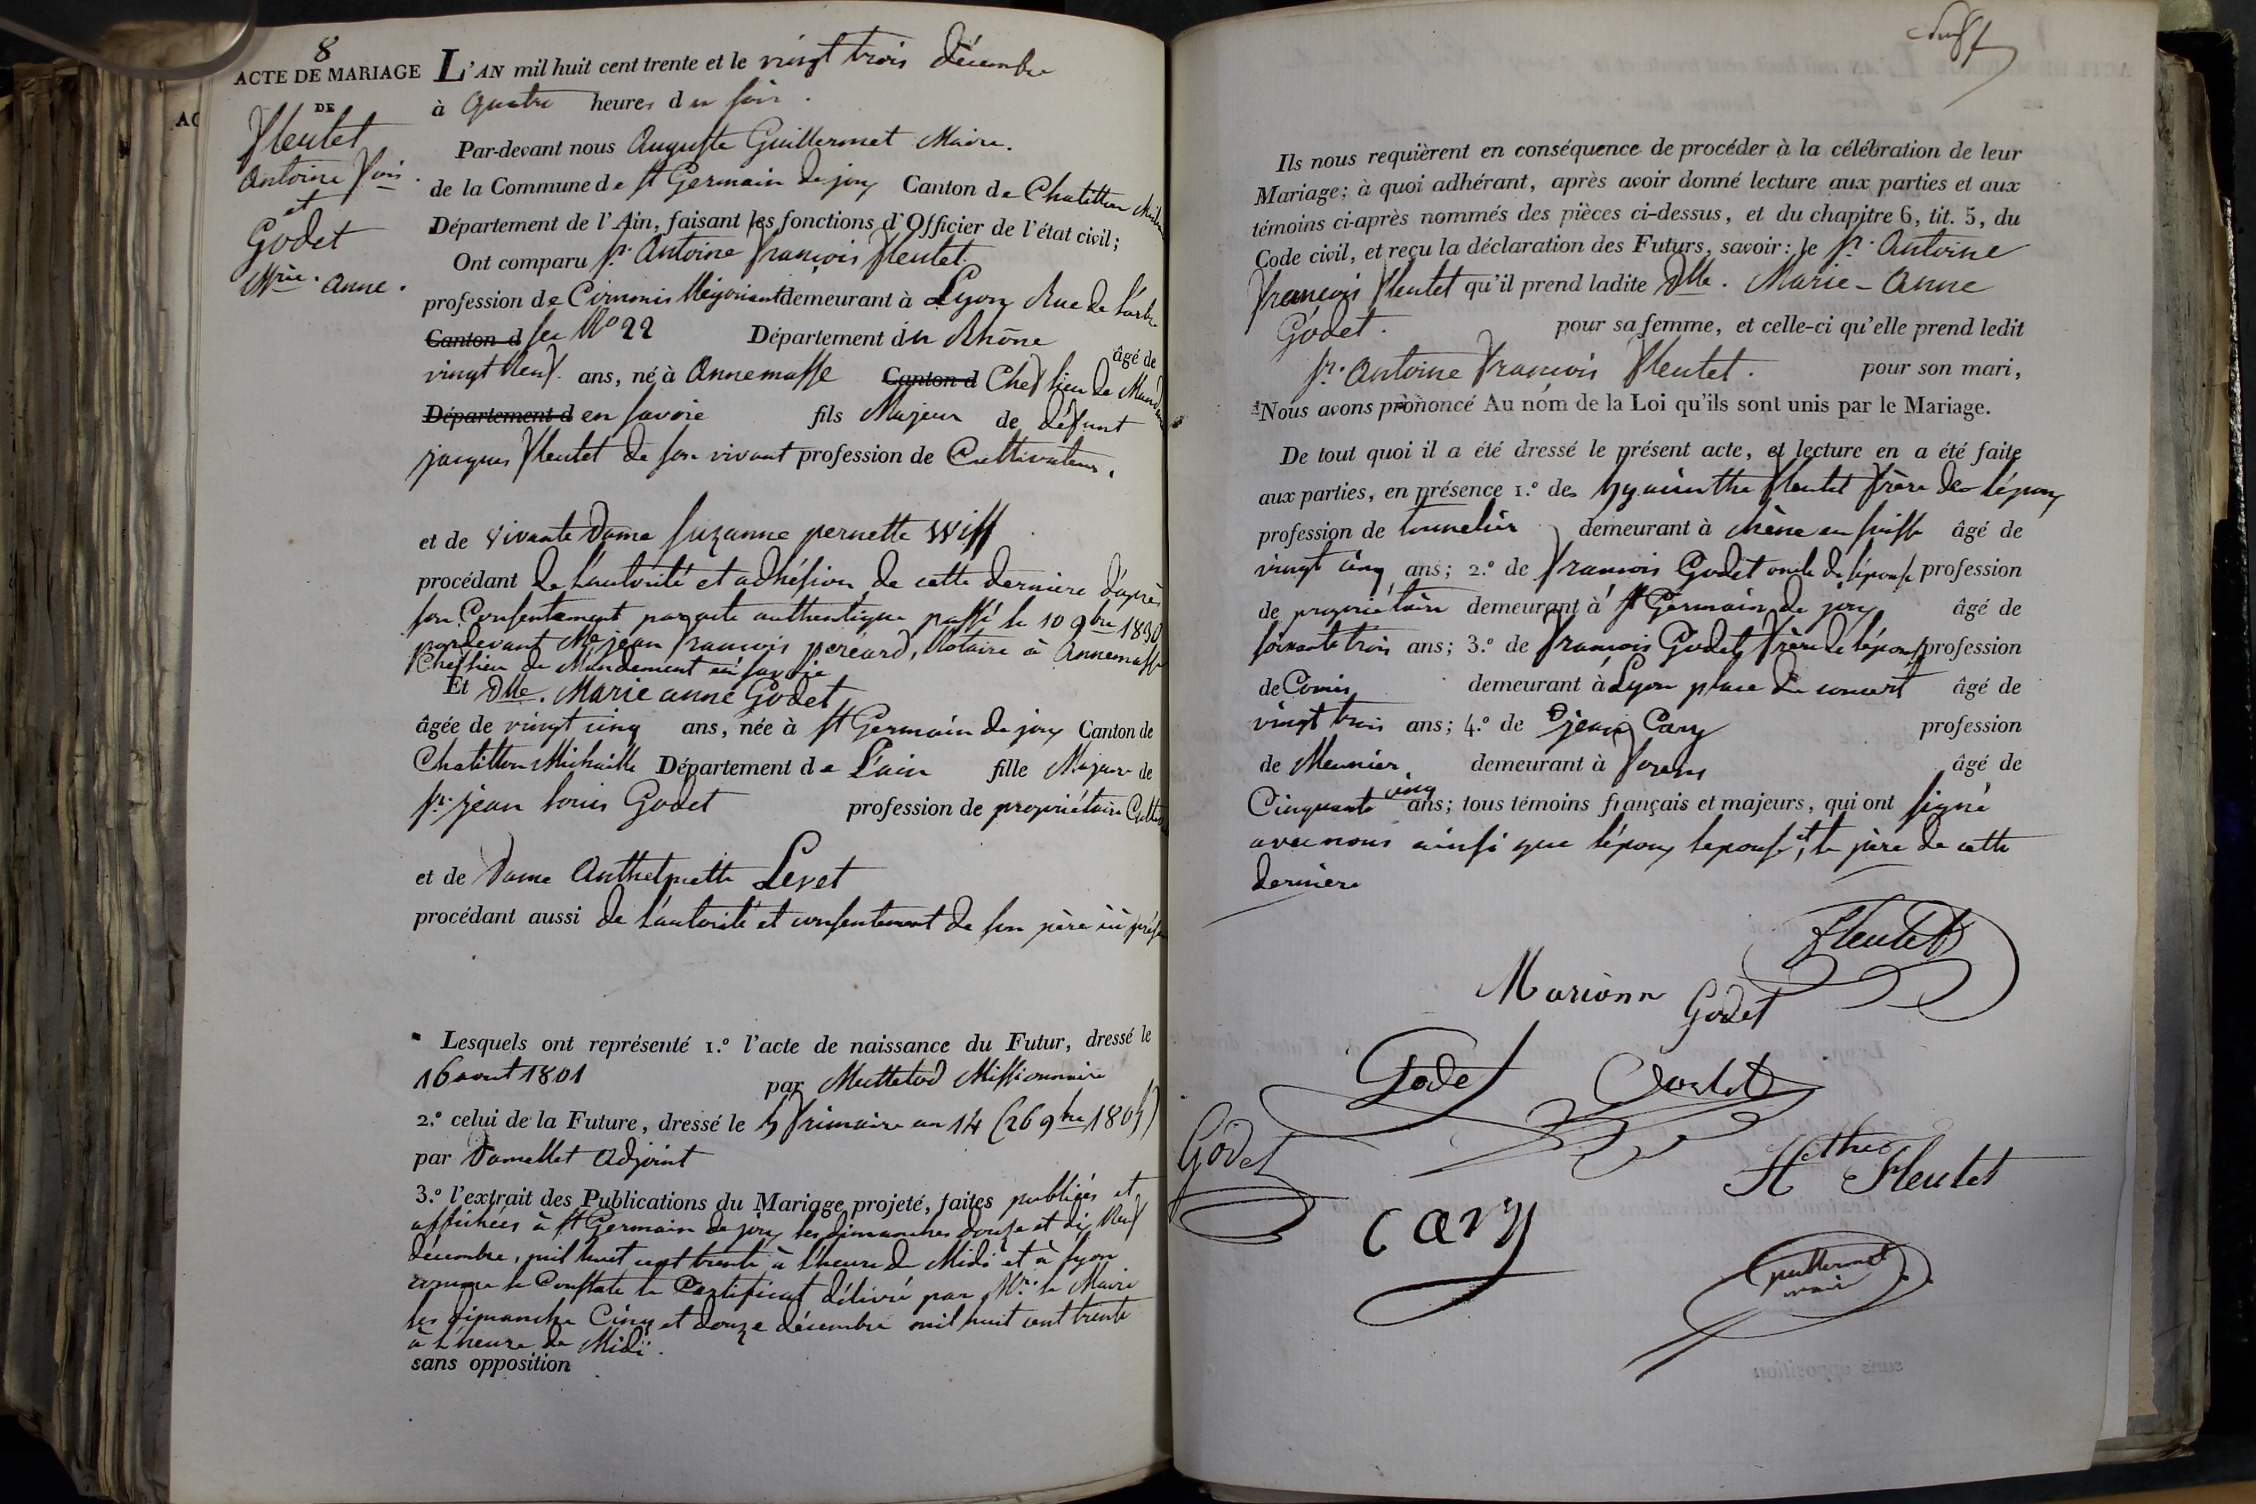 8
ACTE DE MARIAGE
DE
Fleutet
Antoine Fois.
et
Godet
Mrie. Anne.
L'AN mil huit cent trente et le vingt trois décembre
à quatre heures du soir.
Par-devant nous Auguste Guillermet Maire.
de la Commune de St Germain de joux Canton de Chatillon
Département de l'Ain, faisant les fonctions d'Officier de l'état civil;
Ont comparu Sr. Antoine François Fleutet
profession de Commis Négociant demeurant à Lyon Rue de l'arbre
Canton d sec No 22 Département du Rhône âgé de
vingt neuf ans, né à Annemasse Canton d Chef lieu de Mandement
Département d en Savoie fils Majeur de défunt
jacques Fleutet de son vivant profession de Cultivateur,
et de vivante Dame Suzanne pernette Wiss
procédant de l'autorité et adhésion de cette dernière d'après
son Consentement par acte authentique passé le 10 9bre 1830
pardevant Me jean François peréard, Notaire à Annemasse
Chef lieu de Mandement en Savoie
Et Dlle. Marie anne Godet
âgée de vingt cinq ans, née à St Germain de joux Canton de
Chatillon Michaille Département de L'ain fille Majeure de
Sr. jean louis Godet profession de propriétaire
et de Dame Anthelmette Levet
procédant aussi de l'autorité et consentement de son père ici
Lesquels ont représenté 1.º l'acte de naissance du Futur, dressé le
16 aout 1801 par Missionnaire
2.º celui de la Future, dressé le 5 frimaire an 14 (26 9bre 1805)
par Adjoint
3.º l'extrait des Publications du Mariage projeté, faites publiées et
affichées à St Germain de joux les dimanches douze et dix Neuf
décembre, mil huit cent trente à l'heure de Midi et à Lyon
comme le Constate le Certificat délivré par Mr. le Maire
les dimanche Cinq et douze décembre mil huit cent trente
à l'heure de Midi.
sans opposition
Ils nous requièrent en conséquence de procéder à la célébration de leur
Mariage; à quoi adhérant, après avoir donné lecture aux parties et aux
témoins ci-après nommés des pièces ci-dessus, et du chapitre 6, tit. 5, du
Code civil, et reçu la déclaration des Futurs, savoir: le Sr. Antoine
François Fleutet qu'il prend ladite Dlle. Marie-Anne
Godet. pour sa femme, et celle-ci qu'elle prend ledit
Sr. Antoine François Fleutet. pour son mari,
Nous avons prononcé Au nom de la Loi qu'ils sont unis par le Mariage.
De tout quoi il a été dressé le présent acte, et lecture en a été faite
aux parties, en présence 1.º des hyacinthe Fleutet frère de l'époux
profession de tonnelier demeurant à chêne en suisse âgé de
vingt cinq ans; 2.º de François Godet oncle de l'épouse profession
de propriétaire demeurant à St Germain de joux âgé de
soixante trois ans; 3.º de François Godet, frère de l'épouse profession
de Comis demeurant à Lyon place du concert âgé de
vingt trois ans; 4.º de jean Cary profession
de Meunier demeurant à forens âgé de
Cinquante cinq ans; tous témoins français et majeurs, qui ont signé
avec nous ainsi que l'époux lepouse, et le père de cette
dernière
Fleutet
Marianne
Godet
Godet
Godet
Godet
Hthe Fleutet
cary
Guillermet
maire